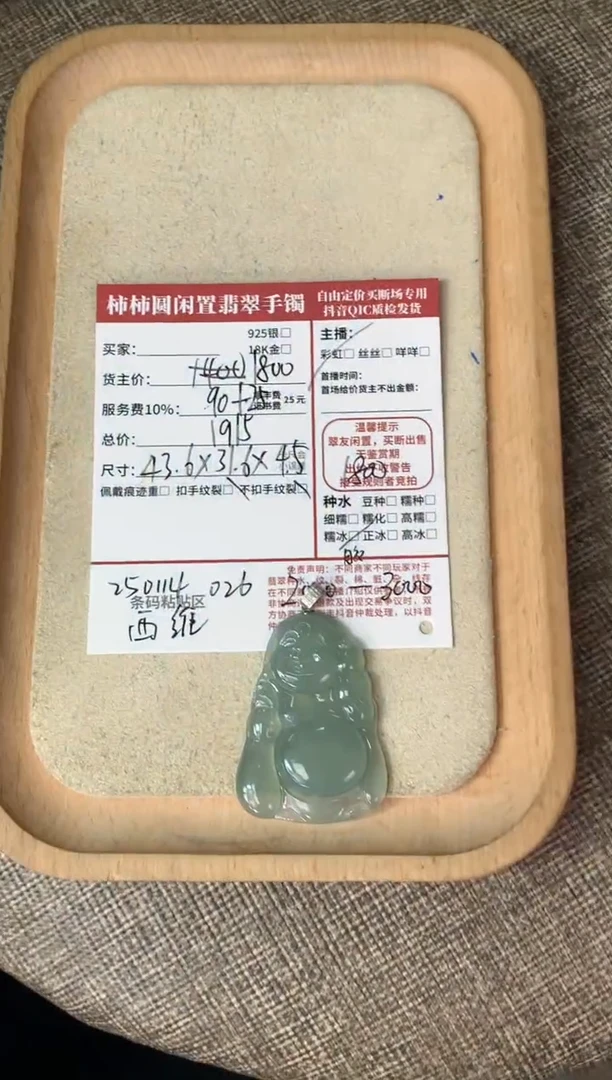 柿柿圆闲置翡翠手镯
自由定价买断场专用
抖音QIC质检发货
925银□
买家：
18K金□
货主价： 1400 1800
服务费10%： 90+25 25元
总价： 1915
尺寸： 43.6×31.6×4.5
佩戴痕迹重□ 扣手纹裂□ 不扣手纹裂□
主播：
彩虹□ 丝丝□ 咩咩□
首播时间：
首场给价货主不出金额：
温馨提示
翠友闲置，买断出售
无鉴赏期
1800
种水 豆种□ 糯种□
细糯□ 糯化□ 高糯□
糯冰□ 正冰□ 高冰□
250114 026
条码粘贴区
西维
免责声明：不同商家不同玩家对于
3000